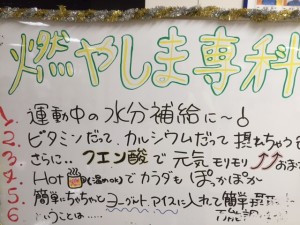 燃やしま専科
1. 運動中の水分補給に~♂
2. ビタミンだって、カルシウムだって摂れちゃうも
3. さらに.. クエン酸で元気モリモリ↑↑おまけ
4. Hot (温めok) でカラダもぽっかぽか~
5. 簡単にちゃちゃっとヨーグルト、アイスに入れて簡単摂
6. ということは……